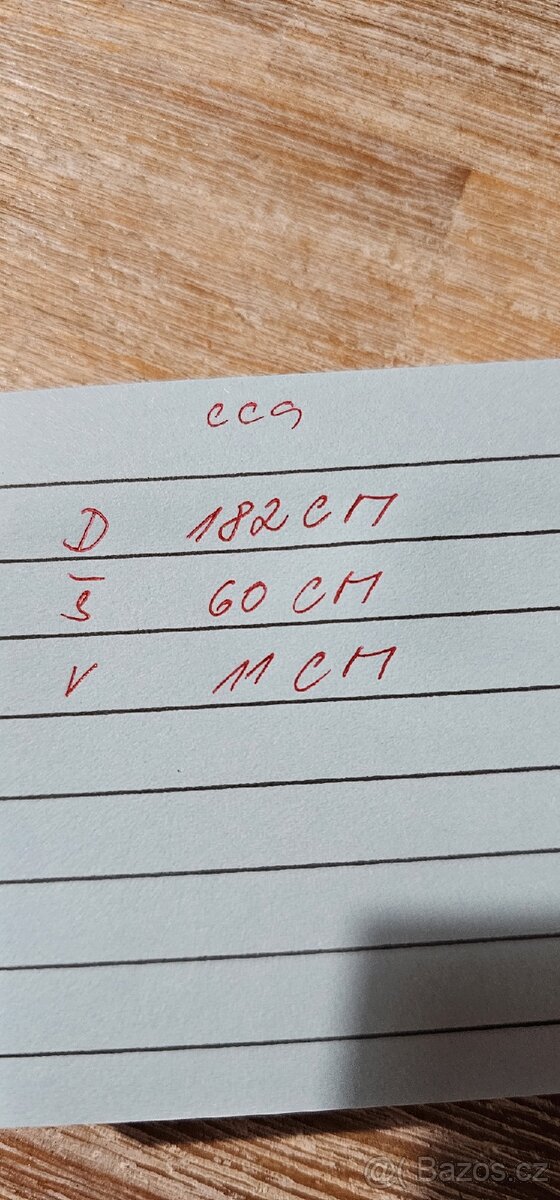 cca
D 182 CM
Š 60 CM
V 11 CM
@( Bazos.cz